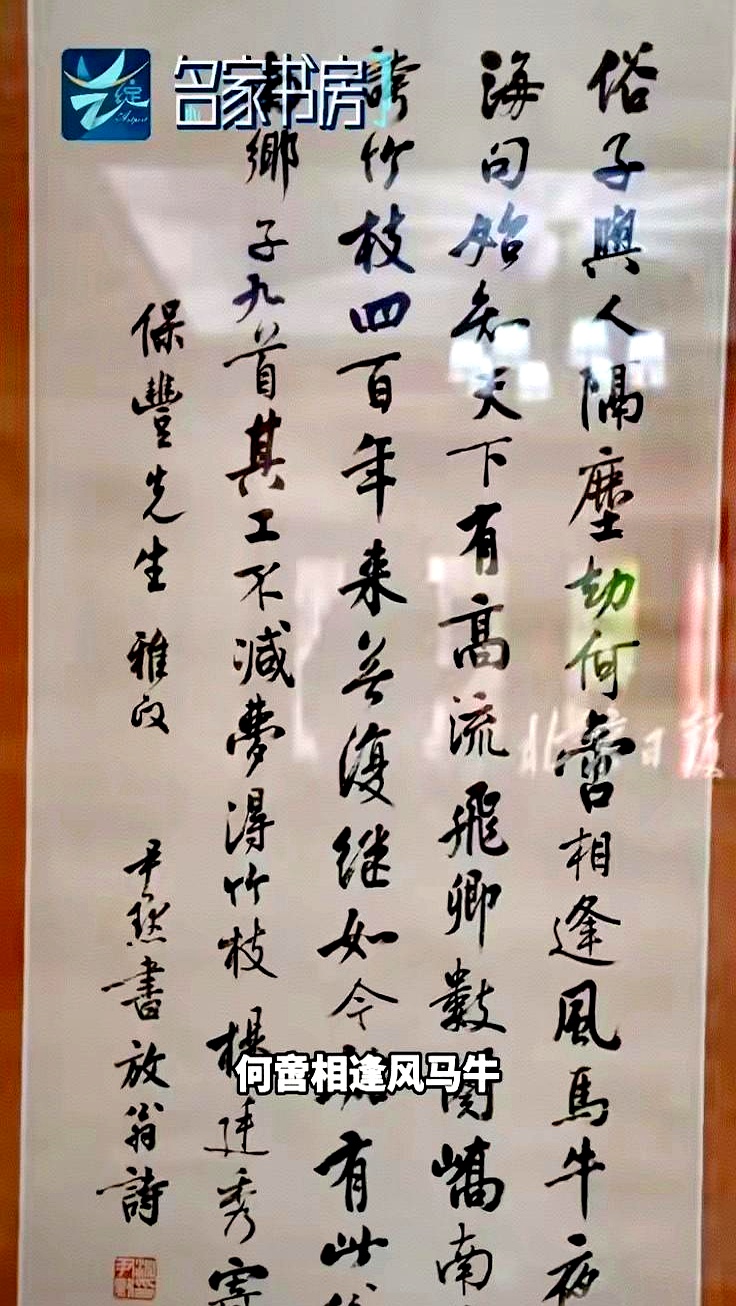 名家书房
绽
俗子與人隔塵劫何啻相逢風馬牛夜
海句始知天下有高流飛卿數闋嶠南
誇竹枝四百年来無復继如今有此
鄉子九首其工不減夢得竹枝楊廷秀寄
保豐先生 雅正
尹默書放翁詩
北京日报
何啻相逢风马牛